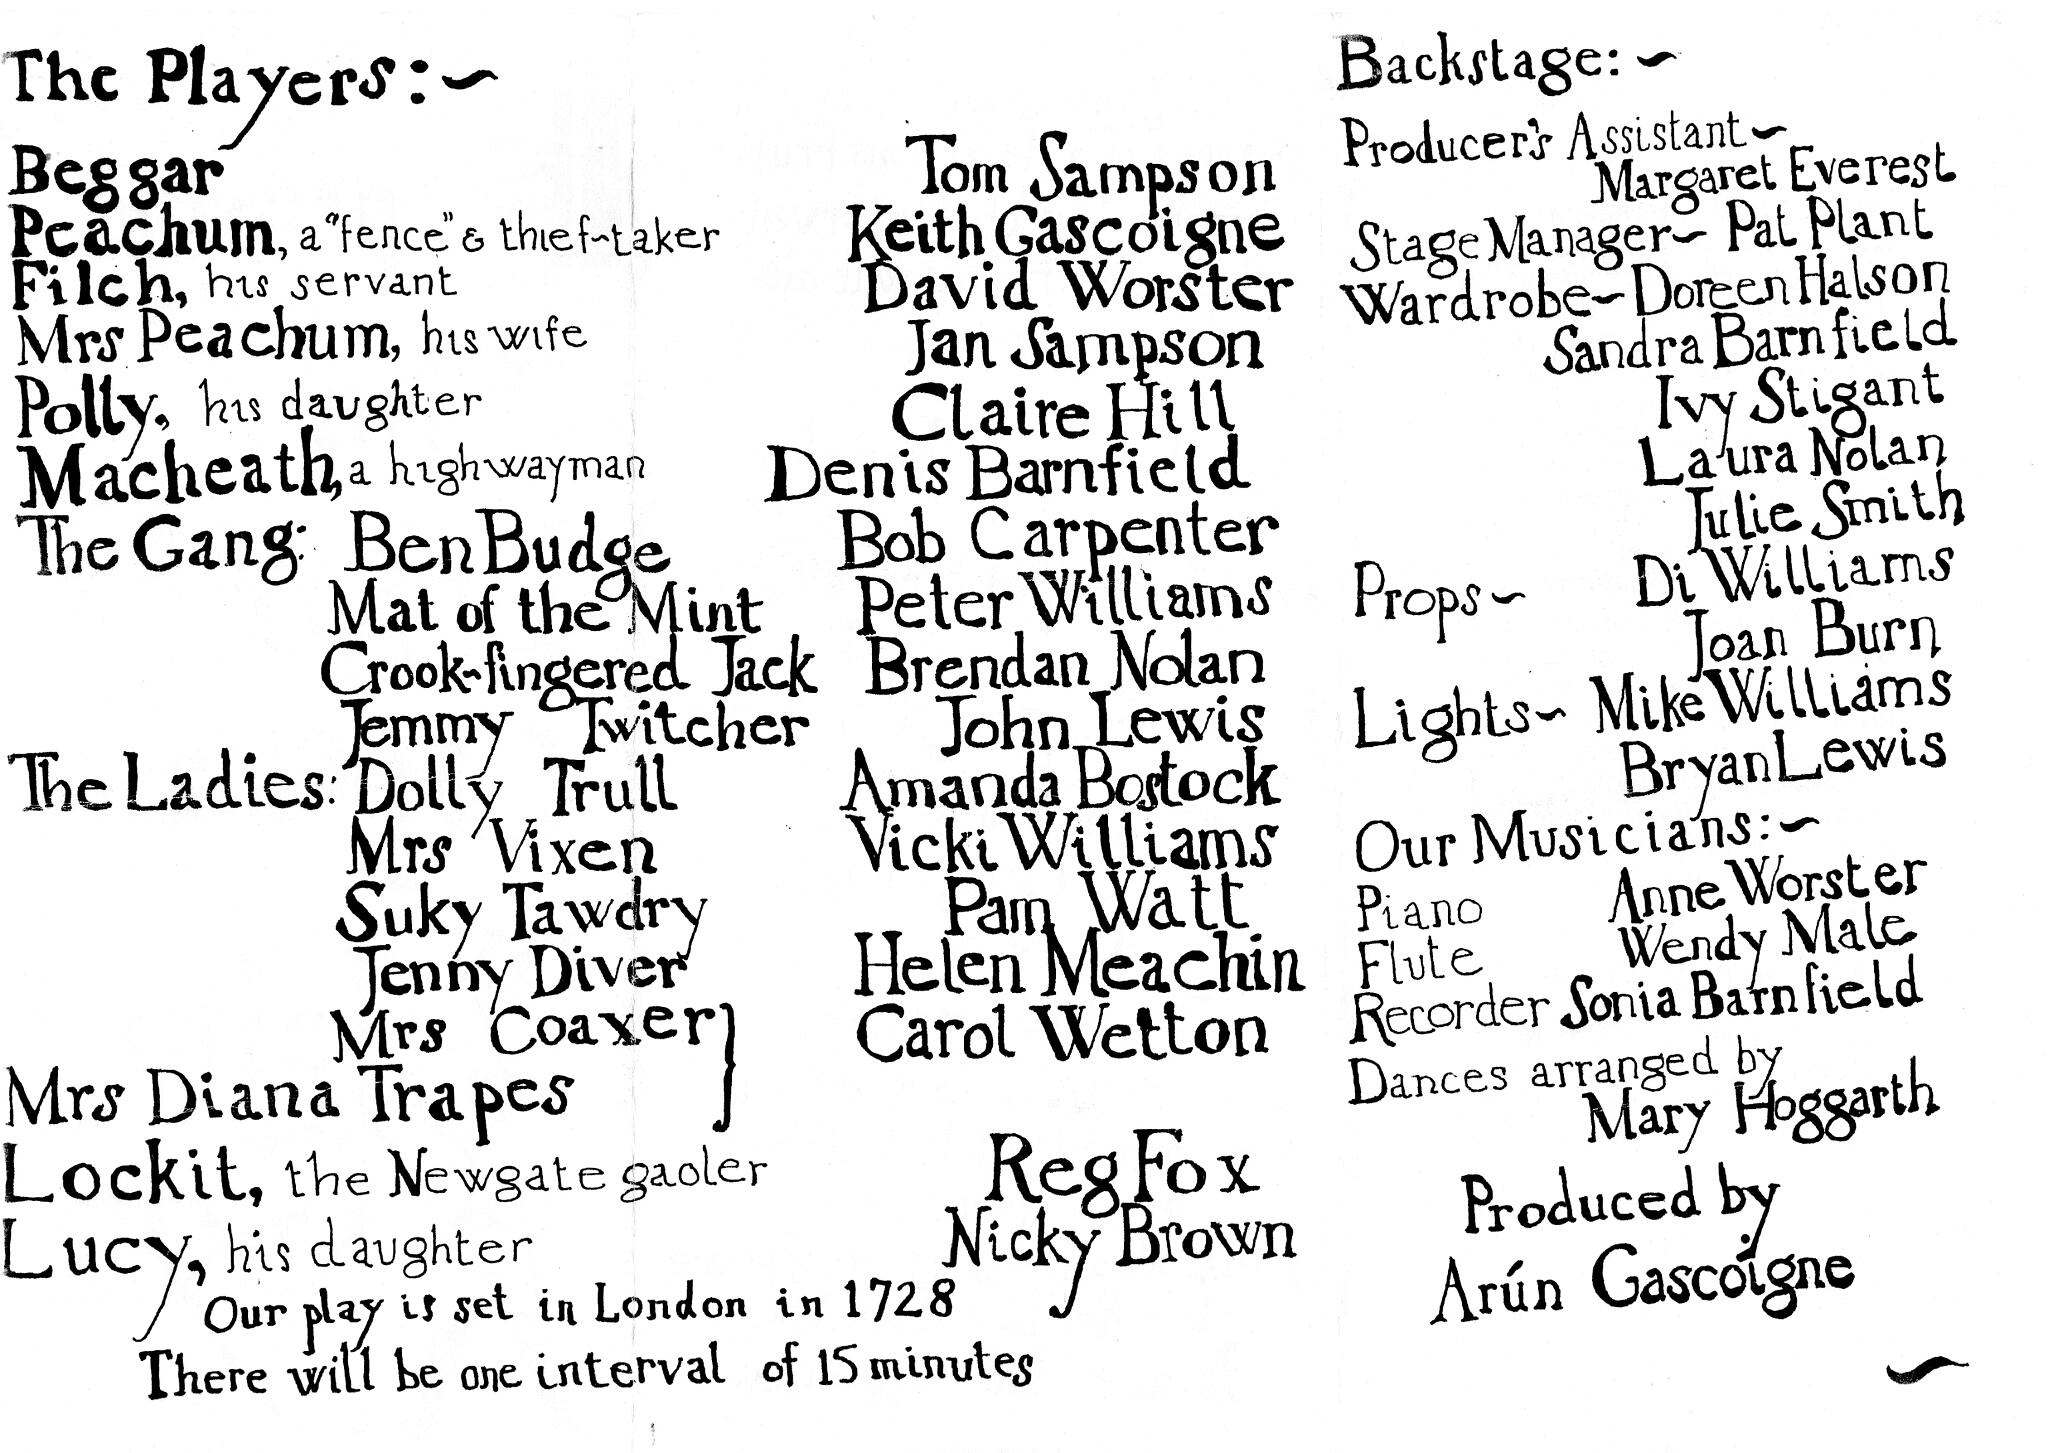 The Players:~
Beggar Tom Sampson
Peachum, a "fence" & thief-taker Keith Gascoigne
Filch, his servant David Worster
Mrs Peachum, his wife Jan Sampson
Polly, his daughter Claire Hill
Macheath, a highwayman Denis Barnfield
The Gang: Ben Budge Bob Carpenter
Mat of the Mint Peter Williams
Crook-fingered Jack Brendan Nolan
Jemmy Twitcher John Lewis
The Ladies: Dolly Trull Amanda Bostock
Mrs Vixen Vicki Williams
Suky Tawdry Pam Watt
Jenny Diver Helen Meachin
Mrs Coaxer } Carol Wetton
Mrs Diana Trapes
Lockit, the Newgate gaoler Reg Fox
Lucy, his daughter Nicky Brown
Our play is set in London in 1728
There will be one interval of 15 minutes
Backstage:~
Producer's Assistant~
Margaret Everest
Stage Manager~ Pat Plant
Wardrobe~ Doreen Halson
Sandra Barnfield
Ivy Stigant
Laura Nolan
Julie Smith
Props~ Di Williams
Joan Burn
Lights~ Mike Williams
Bryan Lewis
Our Musicians:~
Piano Anne Worster
Flute Wendy Male
Recorder Sonia Barnfield
Dances arranged by
Mary Hoggarth
Produced by
Arún Gascoigne
~